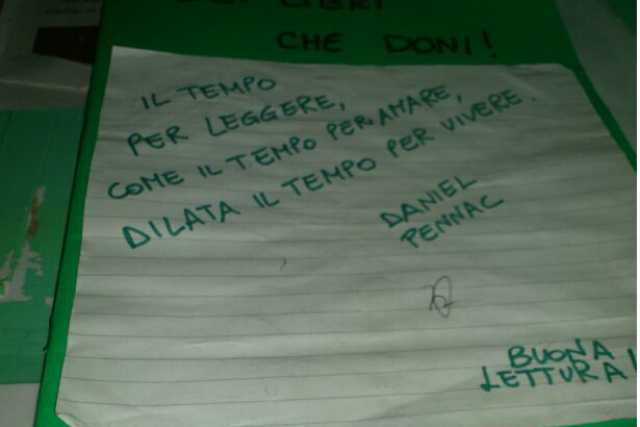 LIBRI
CHE DONI!
IL TEMPO
PER LEGGERE,
COME IL TEMPO PER AMARE,
DILATA IL TEMPO PER VIVERE.
DANIEL
PENNAC
BUONA
LETTURA!